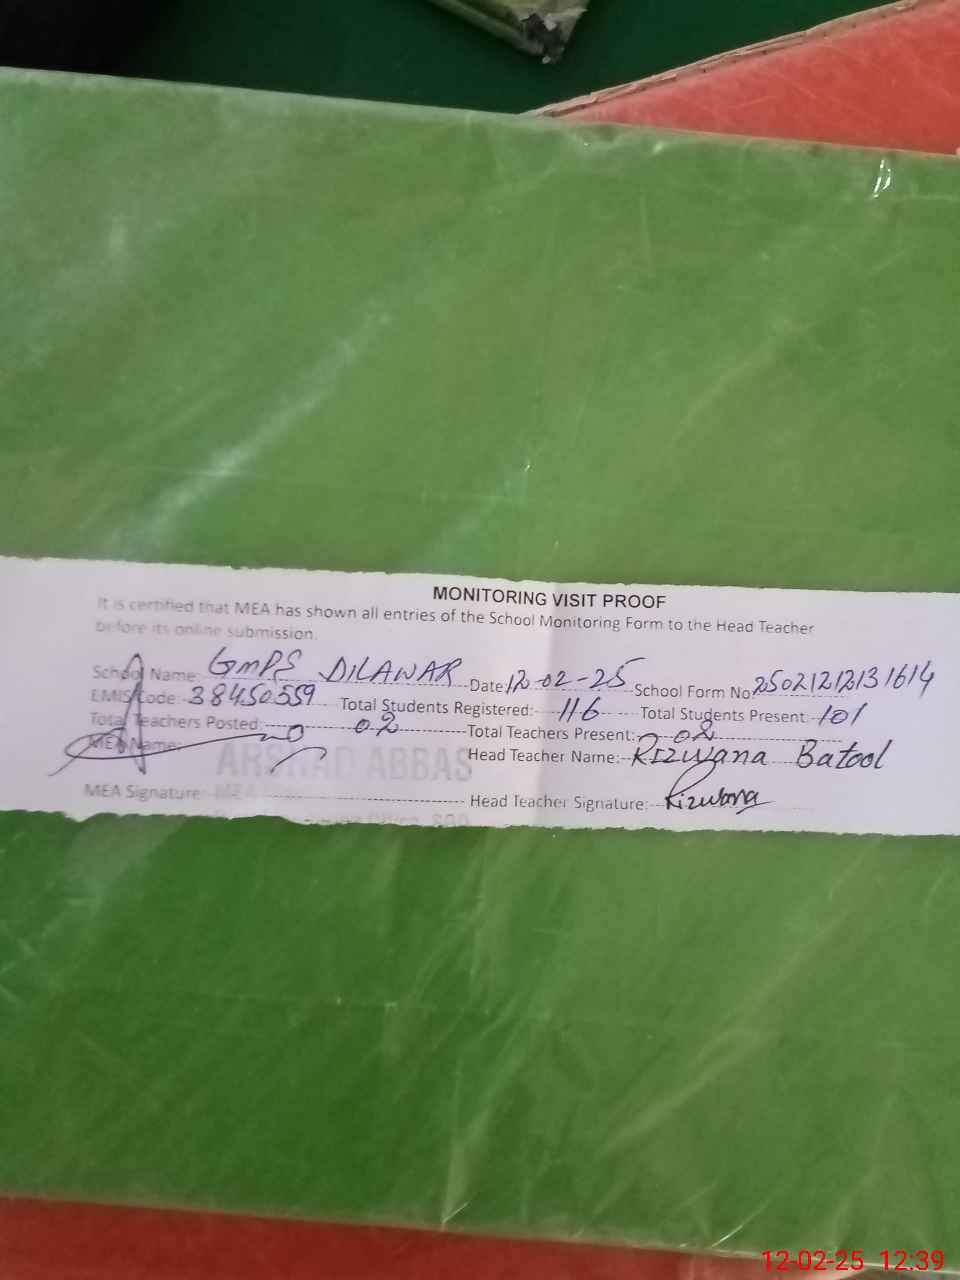 MONITORING VISIT PROOF
It is certified that MEA has shown all entries of the School Monitoring Form to the Head Teacher
before its online submission.
School Name: GMPS DILAWAR Date: 12-02-25 School Form No. 2502121213 1614
EMIS Code: 38450559 Total Students Registered: 116 Total Students Present: 101
Total Teachers Posted: 02 Total Teachers Present: 02
MEA Name: ARSHAD ABBAS Head Teacher Name: Rizwana Batool
MEA Signature: MEA Head Teacher Signature: Rizwana
12-02-25 12:39